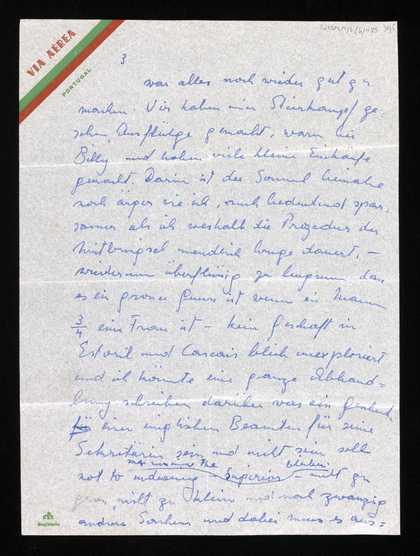 VIA AÉREA
PORTUGAL
3
war alles noch wieder gut zu
machen. Wir haben einen Stierkampf ge-
sehen, Ausflüge gemacht, waren bei
Billy und haben viele kleine Einkäufe
gemacht. Darin ist der beinahe
noch ärger wie ich, auch bedeutend spar-
samer als ich weshalb die Prozedur der
unendlich lange dauert, –
wiederum überflüssig zu leugnen dass
es ein grosser ist wenn ein Mann
3/4 eine Frau ist – kein Geschäft in
Estoril und Cascais blieb unexploriert
und ich könnte eine ganze Abhand-
lung schreiben darüber was ein Geschenk
einer englischen Beamten für seine
Sekretärin sein und nicht sein soll
not to the bleiben
Superior – nicht zu
gross, nicht zu klein und noch zwanzig
andere Sachen und dabei muss es aus-